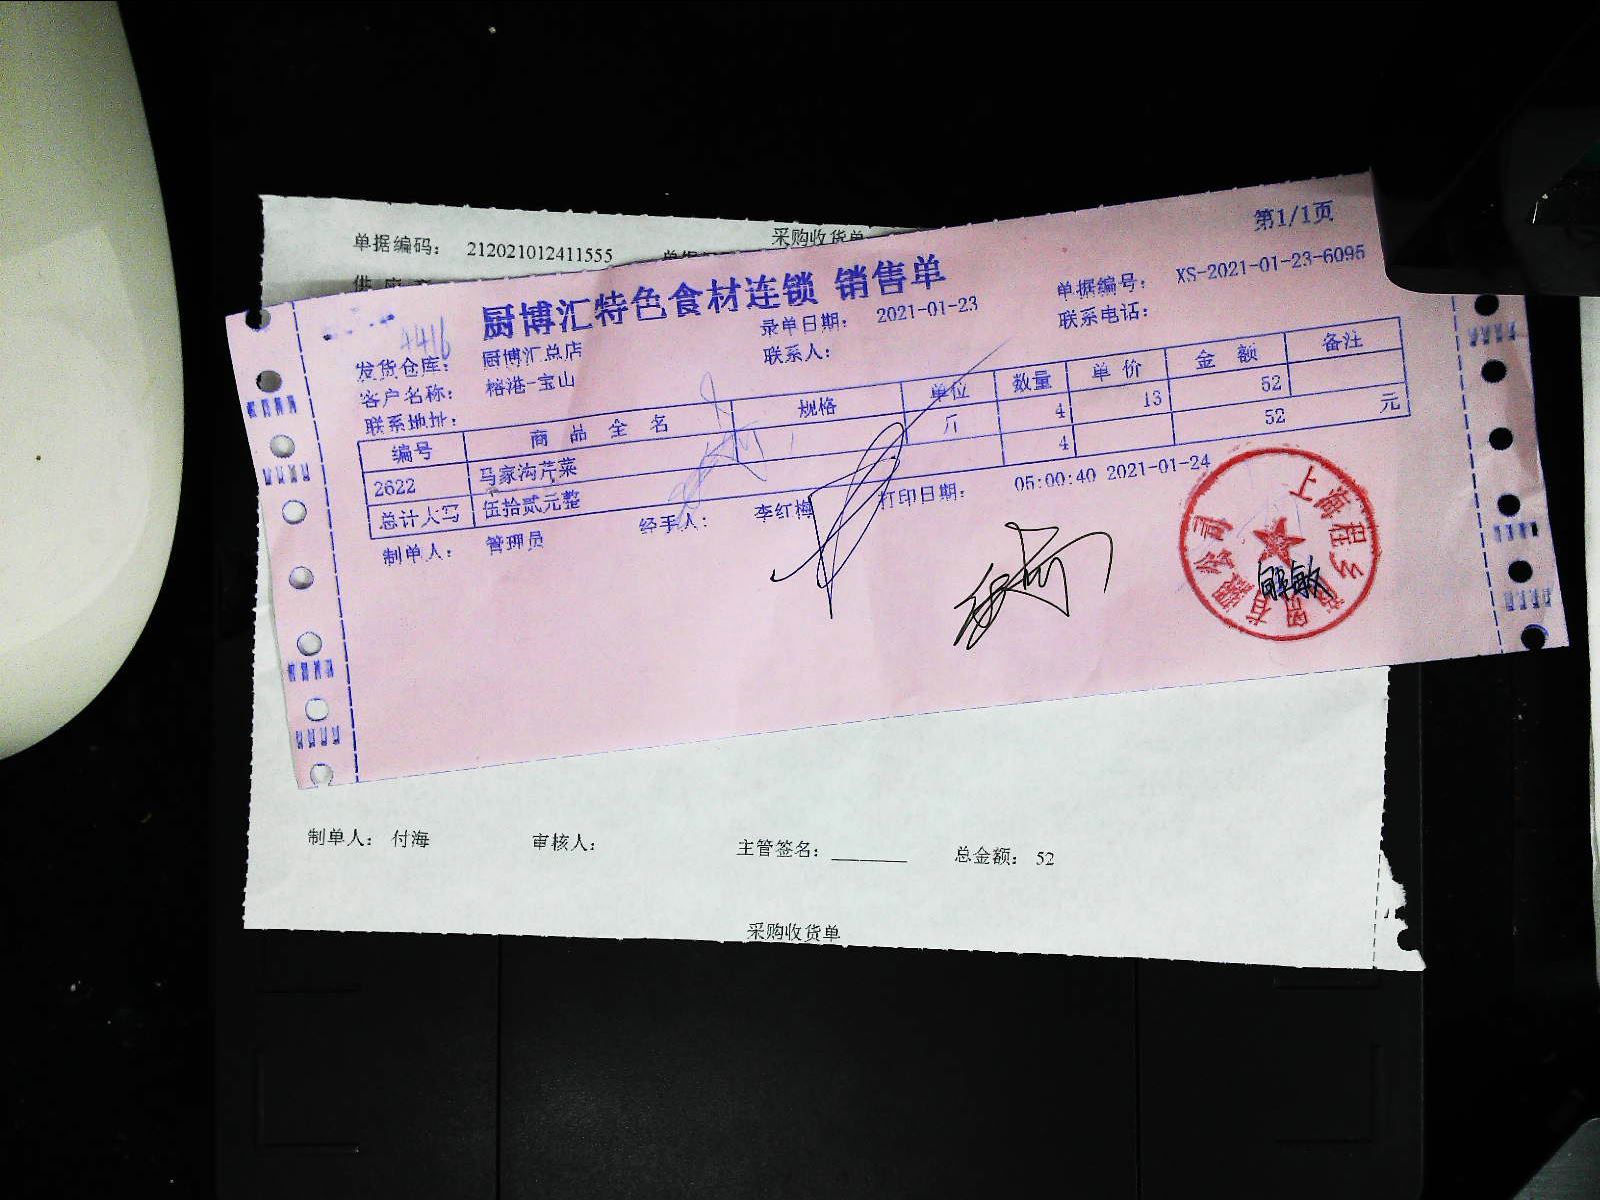 采购收货单
单据编码： 212021012411555
第1/1页
厨博汇特色食材连锁 销售单
4416
录单日期： 2021-01-23 单据编号： XS-2021-01-23-6095
发货仓库： 厨博汇总店 联系人： 联系电话：
客户名称： 榕港-宝山
联系地址：
编号 商品全名 规格 单位 数量 单价 金额 备注
2622 马家沟芹菜 斤 4 13 52
总计大写 伍拾贰元整 4 52 元
制单人： 管理员 经手人： 李红梅 打印日期： 05:00:40 2021-01-24
上海程乡 限公司
解敏
制单人： 付海 审核人： 主管签名： 总金额： 52
采购收货单